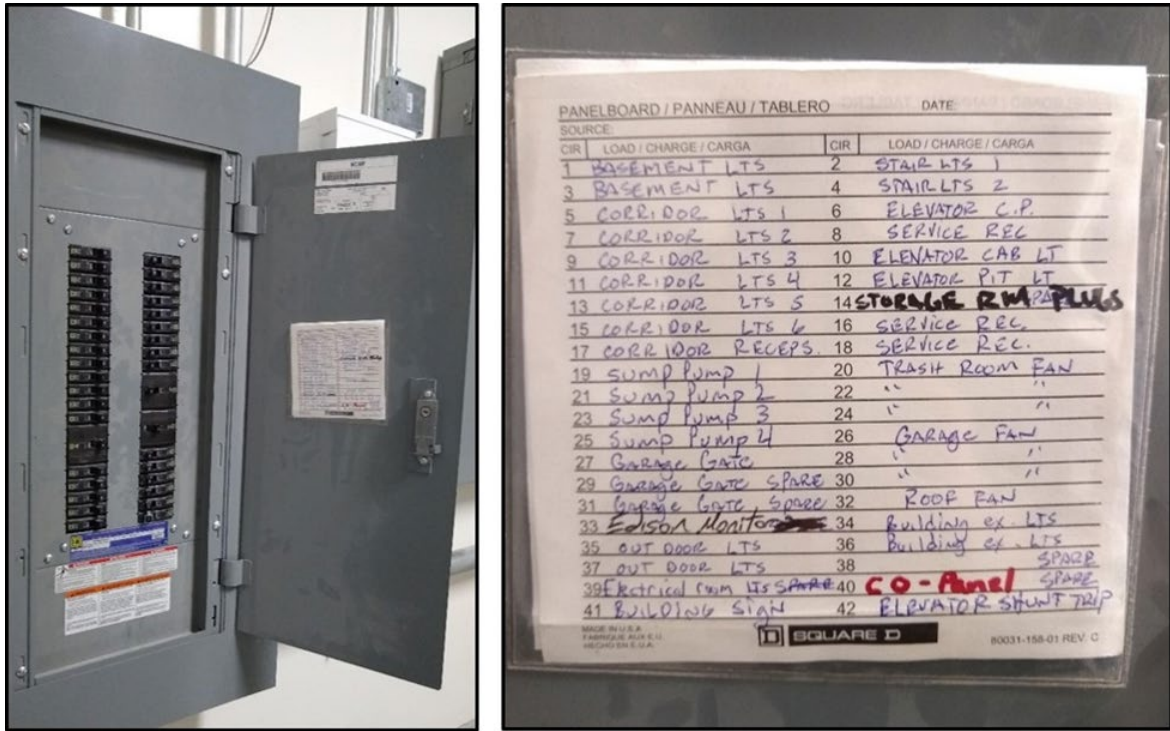 PANELBOARD / PANNEAU / TABLERO DATE:
SOURCE:
CIR LOAD / CHARGE / CARGA CIR LOAD / CHARGE / CARGA
1 BASEMENT LTS 2 STAIR LTS 1
3 BASEMENT LTS 4 STAIR LTS 2
5 CORRIDOR LTS 1 6 ELEVATOR C.P.
7 CORRIDOR LTS 2 8 SERVICE REC
9 CORRIDOR LTS 3 10 ELEVATOR CAB LT
11 CORRIDOR LTS 4 12 ELEVATOR PIT LT
13 CORRIDOR LTS 5 14 STORAGE RM PLUGS
15 CORRIDOR LTS 6 16 SERVICE REC.
17 CORRIDOR RECEPS. 18 SERVICE REC.
19 Sump Pump 1 20 TRASH ROOM FAN
21 Sump Pump 2 22 " "
23 Sump Pump 3 24 " "
25 Sump Pump 4 26 GARAGE FAN
27 GARAGE GATE 28 " "
29 GARAGE GATE SPARE 30 " "
31 GARAGE GATE Spare 32 ROOF FAN
33 Edison Monitor 34 Building ex. LTS
35 OUT DOOR LTS 36 Building ex. LTS
37 OUT DOOR LTS 38 SPARE
39 Electrical room LTS SPARE 40 CO-Panel SPARE
41 BUILDING SIGN 42 ELEVATOR SHUNT TRIP
MADE IN U.S.A.
FABRIQUE AUX E.U.
HECHO EN E.U.A.
D SQUARE D
80031-158-01 REV. C